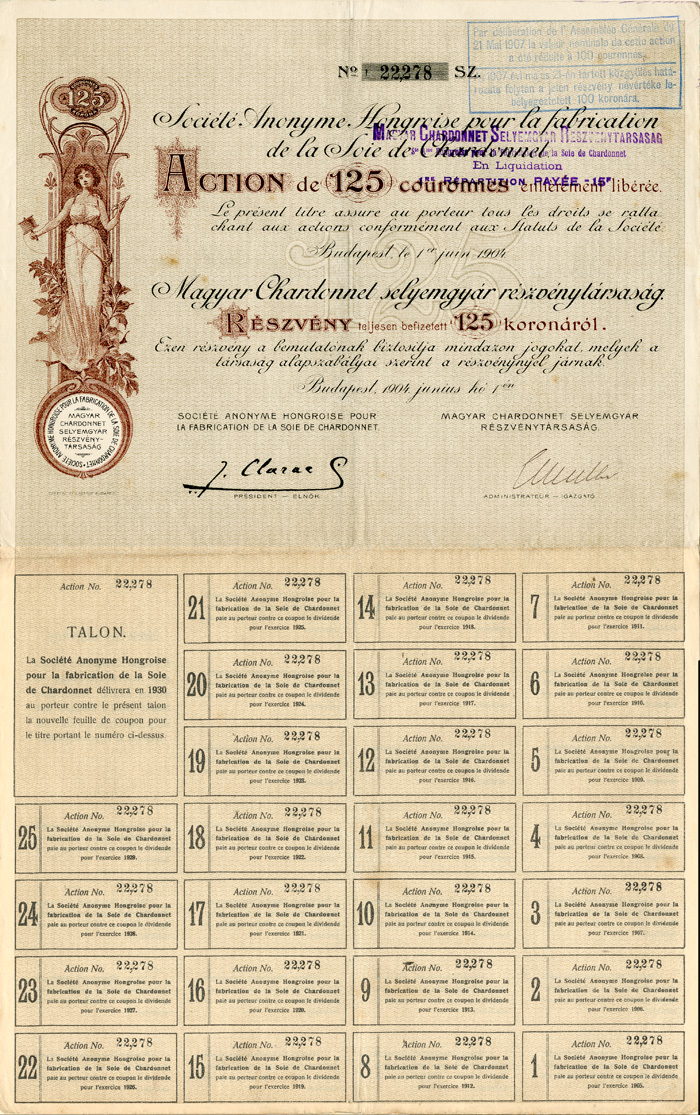 Par délibération de l'Assemblée Générale du
21 Mai 1907 la valeur nominale de cette action
a été réduite à 100 couronnes.
1907 évi május 21-én tartott közgyűlés hatá-
rozata folytán a jelen részvény névértéke le-
bélyegeztetett 100 koronára.
No 22,278 SZ.
125
Société Anonyme Hongroise pour la fabrication
de la Soie de Chardonnet
MAGYAR CHARDONNET SELYEMGYÁR RÉSZVÉNYTÁRSASÁG
de la Soie de Chardonnet
En Liquidation
1re RÉPARTITION PAYÉE - 15F
ACTION de 125 couronnes entièrement libérée.
Le présent titre assure au porteur tous les droits se ratta-
chant aux actions conformément aux Statuts de la Société
Budapest, le 1er juin 1904
125
Magyar Chardonnet selyemgyár részvénytársaság.
RÉSZVÉNY teljesen befizetett 125 koronáról.
Ezen részvény a bemutatónak biztosítja mindazon jogokat, melyek a
társaság alapszabályai szerint a részvénynyel járnak.
Budapest, 1904 junius hó 1én
SOCIÉTÉ ANONYME HONGROISE POUR LA FABRICATION DE LA SOIE DE CHARDONNET
MAGYAR
CHARDONNET
SELYEMGYÁR
RÉSZVÉNY-
TÁRSASÁG
SOCIÉTÉ ANONYME HONGROISE POUR
LA FABRICATION DE LA SOIE DE CHARDONNET
MAGYAR CHARDONNET SELYEMGYÁR
RÉSZVÉNYTÁRSASÁG.
J. Clarac
PRÉSIDENT — ELNÖK.
ADMINISTRATEUR — IGAZGATÓ.
Action No. 22,278
TALON.
La Société Anonyme Hongroise
pour la fabrication de la Soie
de Chardonnet délivrera en 1930
au porteur contre le présent talon
la nouvelle feuille de coupon pour
le titre portant le numéro ci-dessus.
25
Action No. 22,278
La Société Anonyme Hongroise pour la
fabrication de la Soie de Chardonnet
paie au porteur contre ce coupon le dividende
pour l'exercice 1929.
24
Action No. 22,278
La Société Anonyme Hongroise pour la
fabrication de la Soie de Chardonnet
paie au porteur contre ce coupon le dividende
pour l'exercice 1928.
23
Action No. 22,278
La Société Anonyme Hongroise pour la
fabrication de la Soie de Chardonnet
paie au porteur contre ce coupon le dividende
pour l'exercice 1927.
22
Action No. 22,278
La Société Anonyme Hongroise pour la
fabrication de la Soie de Chardonnet
paie au porteur contre ce coupon le dividende
pour l'exercice 1926.
21
Action No. 22,278
La Société Anonyme Hongroise pour la
fabrication de la Soie de Chardonnet
paie au porteur contre ce coupon le dividende
pour l'exercice 1925.
20
Action No. 22,278
La Société Anonyme Hongroise pour la
fabrication de la Soie de Chardonnet
paie au porteur contre ce coupon le dividende
pour l'exercice 1924.
19
Action No. 22,278
La Société Anonyme Hongroise pour la
fabrication de la Soie de Chardonnet
paie au porteur contre ce coupon le dividende
pour l'exercice 1923.
18
Action No. 22,278
La Société Anonyme Hongroise pour la
fabrication de la Soie de Chardonnet
paie au porteur contre ce coupon le dividende
pour l'exercice 1922.
17
Action No. 22,278
La Société Anonyme Hongroise pour la
fabrication de la Soie de Chardonnet
paie au porteur contre ce coupon le dividende
pour l'exercice 1921.
16
Action No. 22,278
La Société Anonyme Hongroise pour la
fabrication de la Soie de Chardonnet
paie au porteur contre ce coupon le dividende
pour l'exercice 1920.
15
Action No. 22,278
La Société Anonyme Hongroise pour la
fabrication de la Soie de Chardonnet
paie au porteur contre ce coupon le dividende
pour l'exercice 1919.
14
Action No. 22,278
La Société Anonyme Hongroise pour la
fabrication de la Soie de Chardonnet
paie au porteur contre ce coupon le dividende
pour l'exercice 1918.
13
Action No. 22,278
La Société Anonyme Hongroise pour la
fabrication de la Soie de Chardonnet
paie au porteur contre ce coupon le dividende
pour l'exercice 1917.
12
Action No. 22,278
La Société Anonyme Hongroise pour la
fabrication de la Soie de Chardonnet
paie au porteur contre ce coupon le dividende
pour l'exercice 1916.
11
Action No. 22,278
La Société Anonyme Hongroise pour la
fabrication de la Soie de Chardonnet
paie au porteur contre ce coupon le dividende
pour l'exercice 1915.
10
Action No. 22,278
La Société Anonyme Hongroise pour la
fabrication de la Soie de Chardonnet
paie au porteur contre ce coupon le dividende
pour l'exercice 1914.
9
Action No. 22,278
La Société Anonyme Hongroise pour la
fabrication de la Soie de Chardonnet
paie au porteur contre ce coupon le dividende
pour l'exercice 1913.
8
Action No. 22,278
La Société Anonyme Hongroise pour la
fabrication de la Soie de Chardonnet
paie au porteur contre ce coupon le dividende
pour l'exercice 1912.
7
Action No. 22,278
La Société Anonyme Hongroise pour la
fabrication de la Soie de Chardonnet
paie au porteur contre ce coupon le dividende
pour l'exercice 1911.
6
Action No. 22,278
La Société Anonyme Hongroise pour la
fabrication de la Soie de Chardonnet
paie au porteur contre ce coupon le dividende
pour l'exercice 1910.
5
Action No. 22,278
La Société Anonyme Hongroise pour la
fabrication de la Soie de Chardonnet
paie au porteur contre ce coupon le dividende
pour l'exercice 1909.
4
Action No. 22,278
La Société Anonyme Hongroise pour la
fabrication de la Soie de Chardonnet
paie au porteur contre ce coupon le dividende
pour l'exercice 1908.
3
Action No. 22,278
La Société Anonyme Hongroise pour la
fabrication de la Soie de Chardonnet
paie au porteur contre ce coupon le dividende
pour l'exercice 1907.
2
Action No. 22,278
La Société Anonyme Hongroise pour la
fabrication de la Soie de Chardonnet
paie au porteur contre ce coupon le dividende
pour l'exercice 1906.
1
Action No. 22,278
La Société Anonyme Hongroise pour la
fabrication de la Soie de Chardonnet
paie au porteur contre ce coupon le dividende
pour l'exercice 1905.